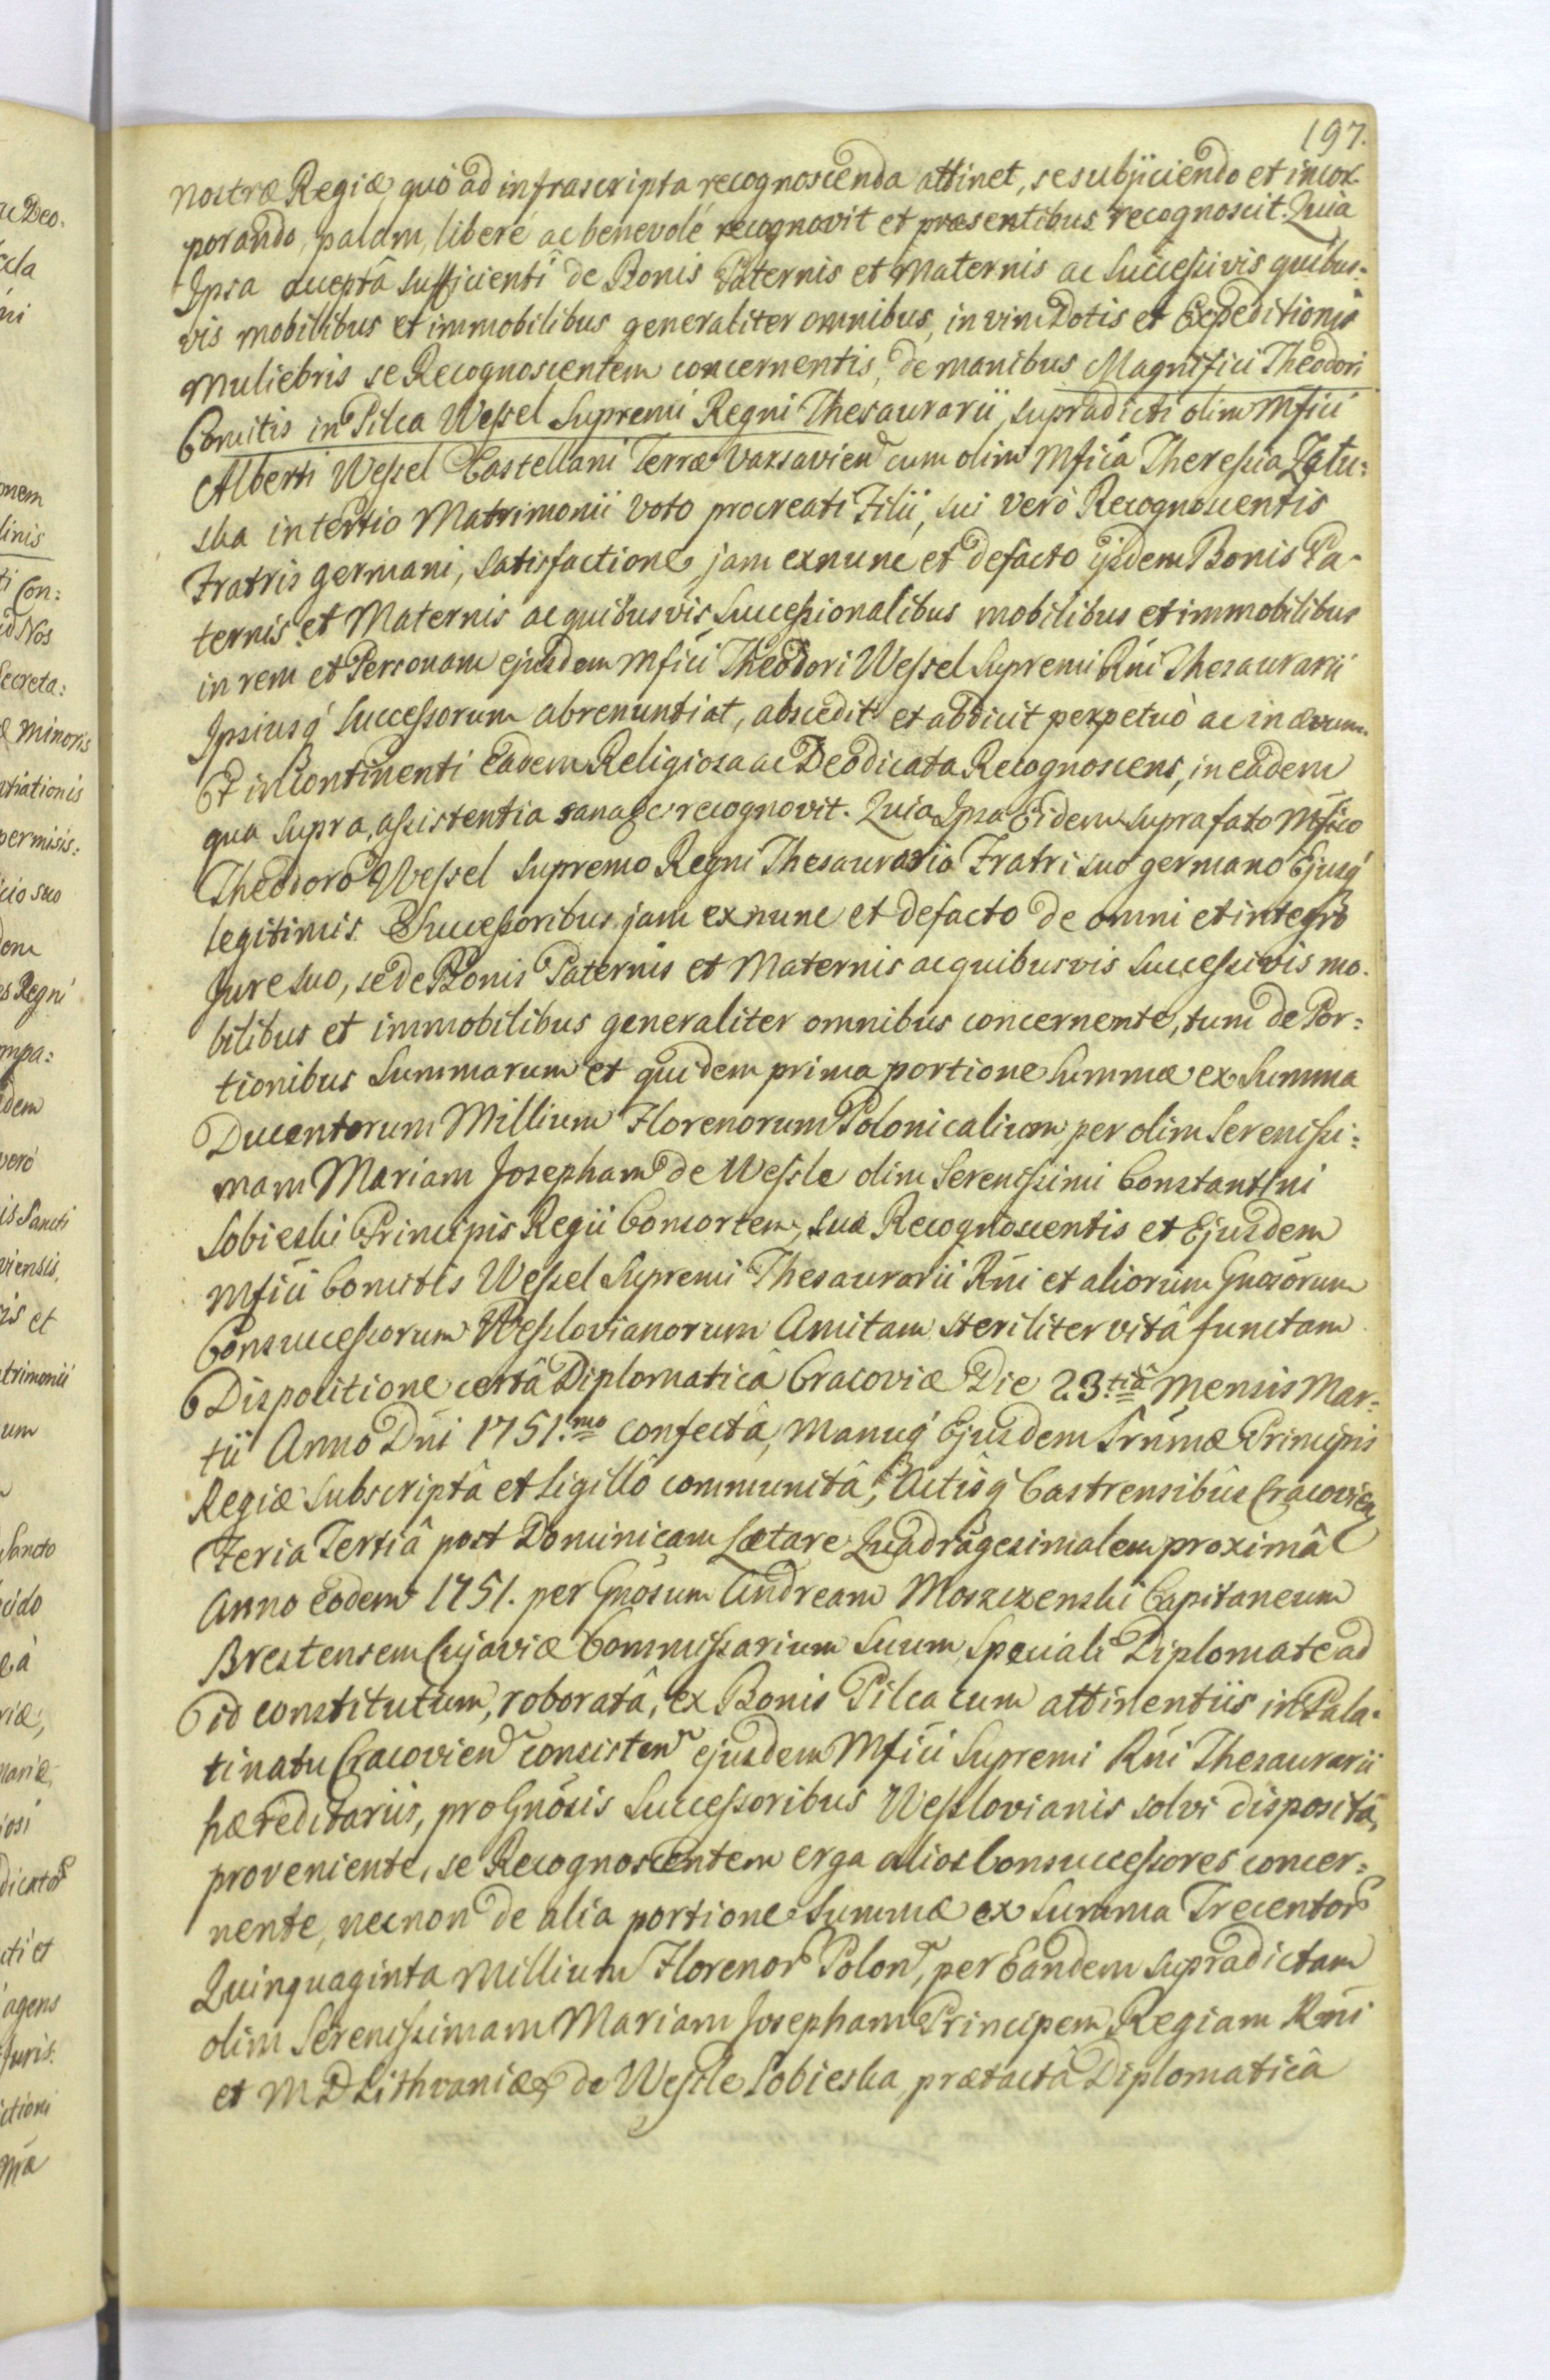 197.
nostræ Regiæ, quò ad infrascripta recognoscenda attinet, se subjiciendo et incor-
porando, palam, liberè ac benevolè recognovit et præsentibus recognoscit. Quia
Ipsa acceptâ sufficienti de Bonis Paternis et Maternis ac Successivis quibus-
vis mobilibus et immobilibus generaliter omnibus, in vim Dotis et Expeditionis
Muliebris se Recognoscentem concernentis, de manibus Magnifici Theodori
Comitis in Pilca Wessel Supremi Regni Thesaurarii, supradicti olim Mfici
Alberti Wessel Castellani Terræ Varsavien cum olim Mfica Theressia Zału:
ska in tertio Matrimonii Voto procreati Filii, sui verò Recognoscentis
Fratris germani, satisfactione, jam exnunc et defacto ijsdem Bonis Pa-
ternis et Maternis ac quibusvis Successionalibus mobilibus et immobilibus
in rem et Personam ejusdem Mfici Theodori Wessel Supremi Rni Thesaurarii
Ipsiusq́ Successorum abrenuntiat, abscedit et abdicit perpetuò ac in ævum.
Et in continenti eadem Religiosa ac Deodicata Recognoscens, in eadem
qua supra, assistentia sana &c recognovit. Quia Ipsa Eidem suprafato Mfico
Theodoro Wessel Supremo Regni Thesaurario Fratri suo germano Ejusq́
legitimis Successoribus jam exnunc et defacto de omni et integro
Jure suo, se de Bonis Paternis et Maternis ac quibusvis Successivis mo-
bilibus et immobilibus generaliter omnibus concernente, tum de Por:
tionibus Summarum et quidem prima portione Summæ ex Summa
Ducentorum Millium Florenorum Polonicalium per olim Serenissi:
mam Mariam Josepham de Wessle olim Serenissimi Constantini
Sobieski Principis Regii Consortem, suæ Recognoscentis et Ejusdem
Mfici Comitis Wessel Supremi Thesaurarii Rni et aliorum Gnosorum
Consuccessorum Wesslovianorum Amitam steriliter vitâ functam
Dispositione certâ Diplomaticâ Cracoviæ Die 23.tiâ Mensis Mar-
tii Anno Dni 1751.mo confectâ, manuq́ Ejusdem Srnmæ Principis
Regiæ Subscriptâ et Sigillô communitâ, Actisq́ Castrensibus Cracovien
Feria Tertiâ post Dominicam Lætare Quadragesimalem proximâ
Anno eodem 1751. per Gnosum Andream Moszczenski Capitaneum
Brestensem Cujaviæ Commissarium Suum, Speciali Diplomate ad
id constitutum, roboratâ, ex Bonis Pilca cum attinentiis in Pala-
tinatu Cracovien consisten ejusdem Mfici Supremi Rni Thesaurarii
hæreditariis, pro Gnosis Successoribus Wesslovianis solvi dispositâ,
proveniente, se Recognoscentem erga alios Consuccessores concer:
nente, necnon de alia portione Summæ ex Summa Trecentor
Quinquaginta Millium Florenor Polon, per Eandem supradictam
olim Serenissimam Mariam Josepham Principem Regiam Rni
et M D Lithvaniæ, de Wessle Sobieska, prætactâ Diplomaticâ